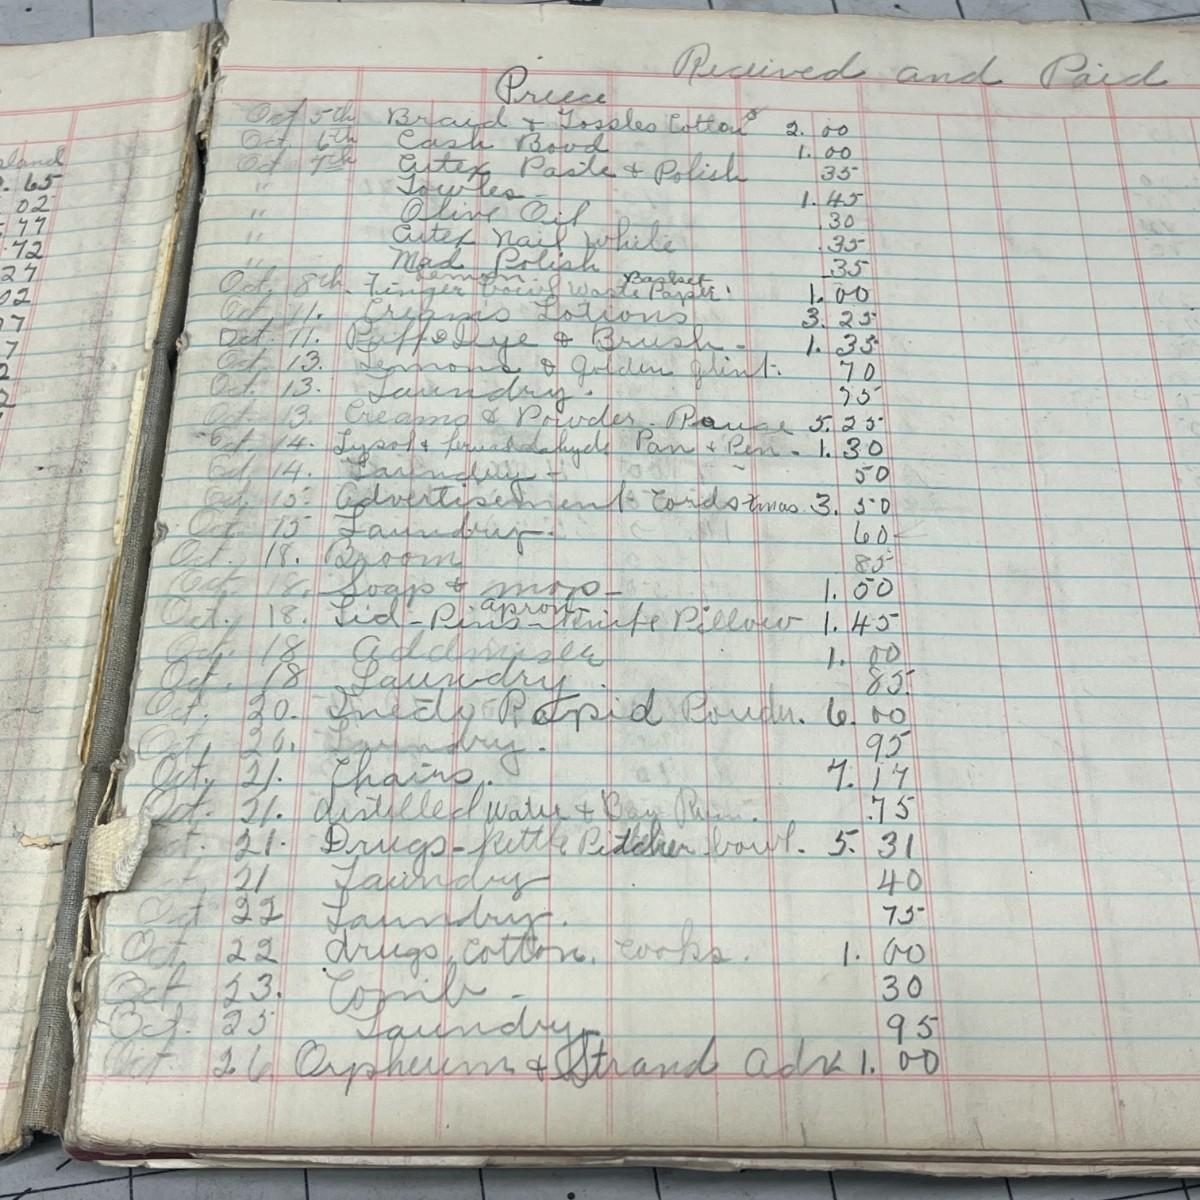 Received and Paid
Price
Oct 5th Braid & Tossles Cottons 2.00
Oct 6th Cash Bood 1.00
Oct 7th Cutex Paste & Polish 35
" Towles 1.45
" Olive Oil .30
" Cutex Nail White .35
" Mad Polish .35
Lemon Basket
Oct. 8th. Finger bowl Waste Paper 1.00
Oct. 11. Creams Lotions 3.25
Oct. 11. Puffs Dye & Brush - 1.35
Oct. 13. Lemons & golden glint. 70
Oct. 13. Laundry. 75
Oct. 13 Creams & Powder. Rouge 5.25
Oct. 14. Lysol & Pan & Pen - 1.30
Oct. 14. Laundry - 50
Oct. 15 Advertisement Cards Xmas 3.50
Oct. 15 Laundry. 60
Oct. 18. Broom 85
Oct. 18. Soap & mop - 1.50
apron
Oct. 18. Lid - Pins - Knife Pillow 1.45
Oct. 18 1.00
Oct. 18 Laundry. 85
Oct. 20. Rapid Powdr. 6.00
Oct. 20. Laundry. 95
Oct. 21. Chairs. 7.17
Oct. 21. distilled Water & Bay Rum. .75
Oct. 21. Drugs - kettle Pitcher bowl. 5.31
Oct 21 Laundry 40
Oct 22 Laundry. 75
Oct. 22 drugs, cotton. 1.00
Oct 23. Comb - 30
Oct. 25 Laundry 95
Oct 26 Orpheum & Strand Adv 1.00
sland
. 65
02
.77
.72
27
02
7
7
2
2